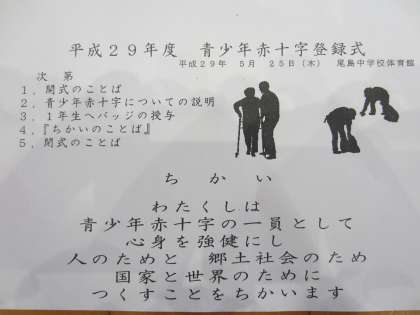 平成29年度　青少年赤十字登録式
平成29年　5月　25日（木）　尾島中学校体育館
次　第
1．開式のことば
2．青少年赤十字についての説明
3．1年生へバッジの授与
4．『ちかいのことば』
5．閉式のことば
ちかい
わたくしは
青少年赤十字の一員として
心身を強健にし
人のためと　郷土社会のため
国家と世界のために
つくすことをちかいます